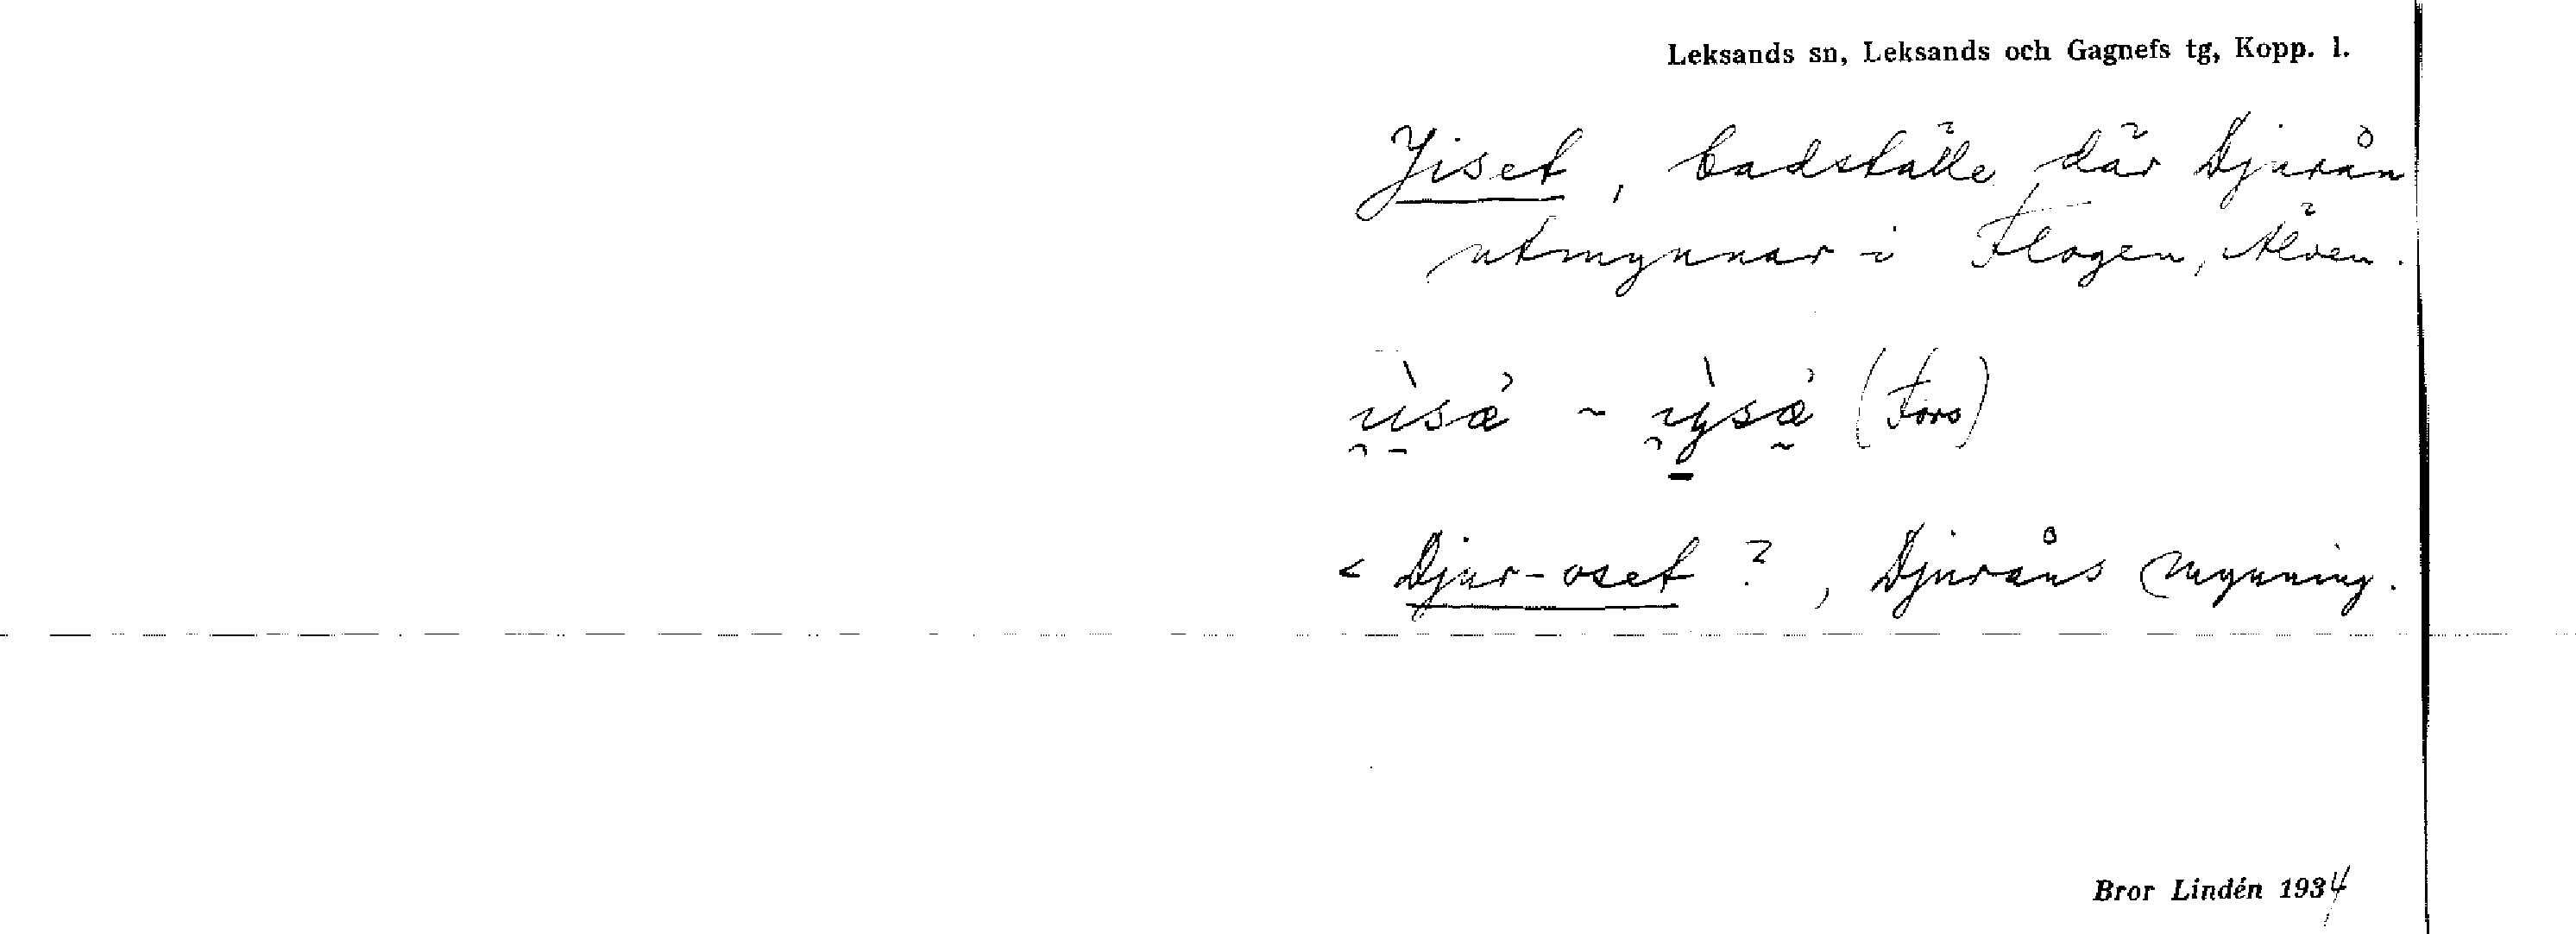 Leksands sn, Leksands och Gagnefs tg, Kopp. l.
Jiset, badställe där Djurån
utmynnar i Flogen, Älven.
~ (Fors)
< Djur-oset?, Djuråns mynning.
Bror Lindén 1934